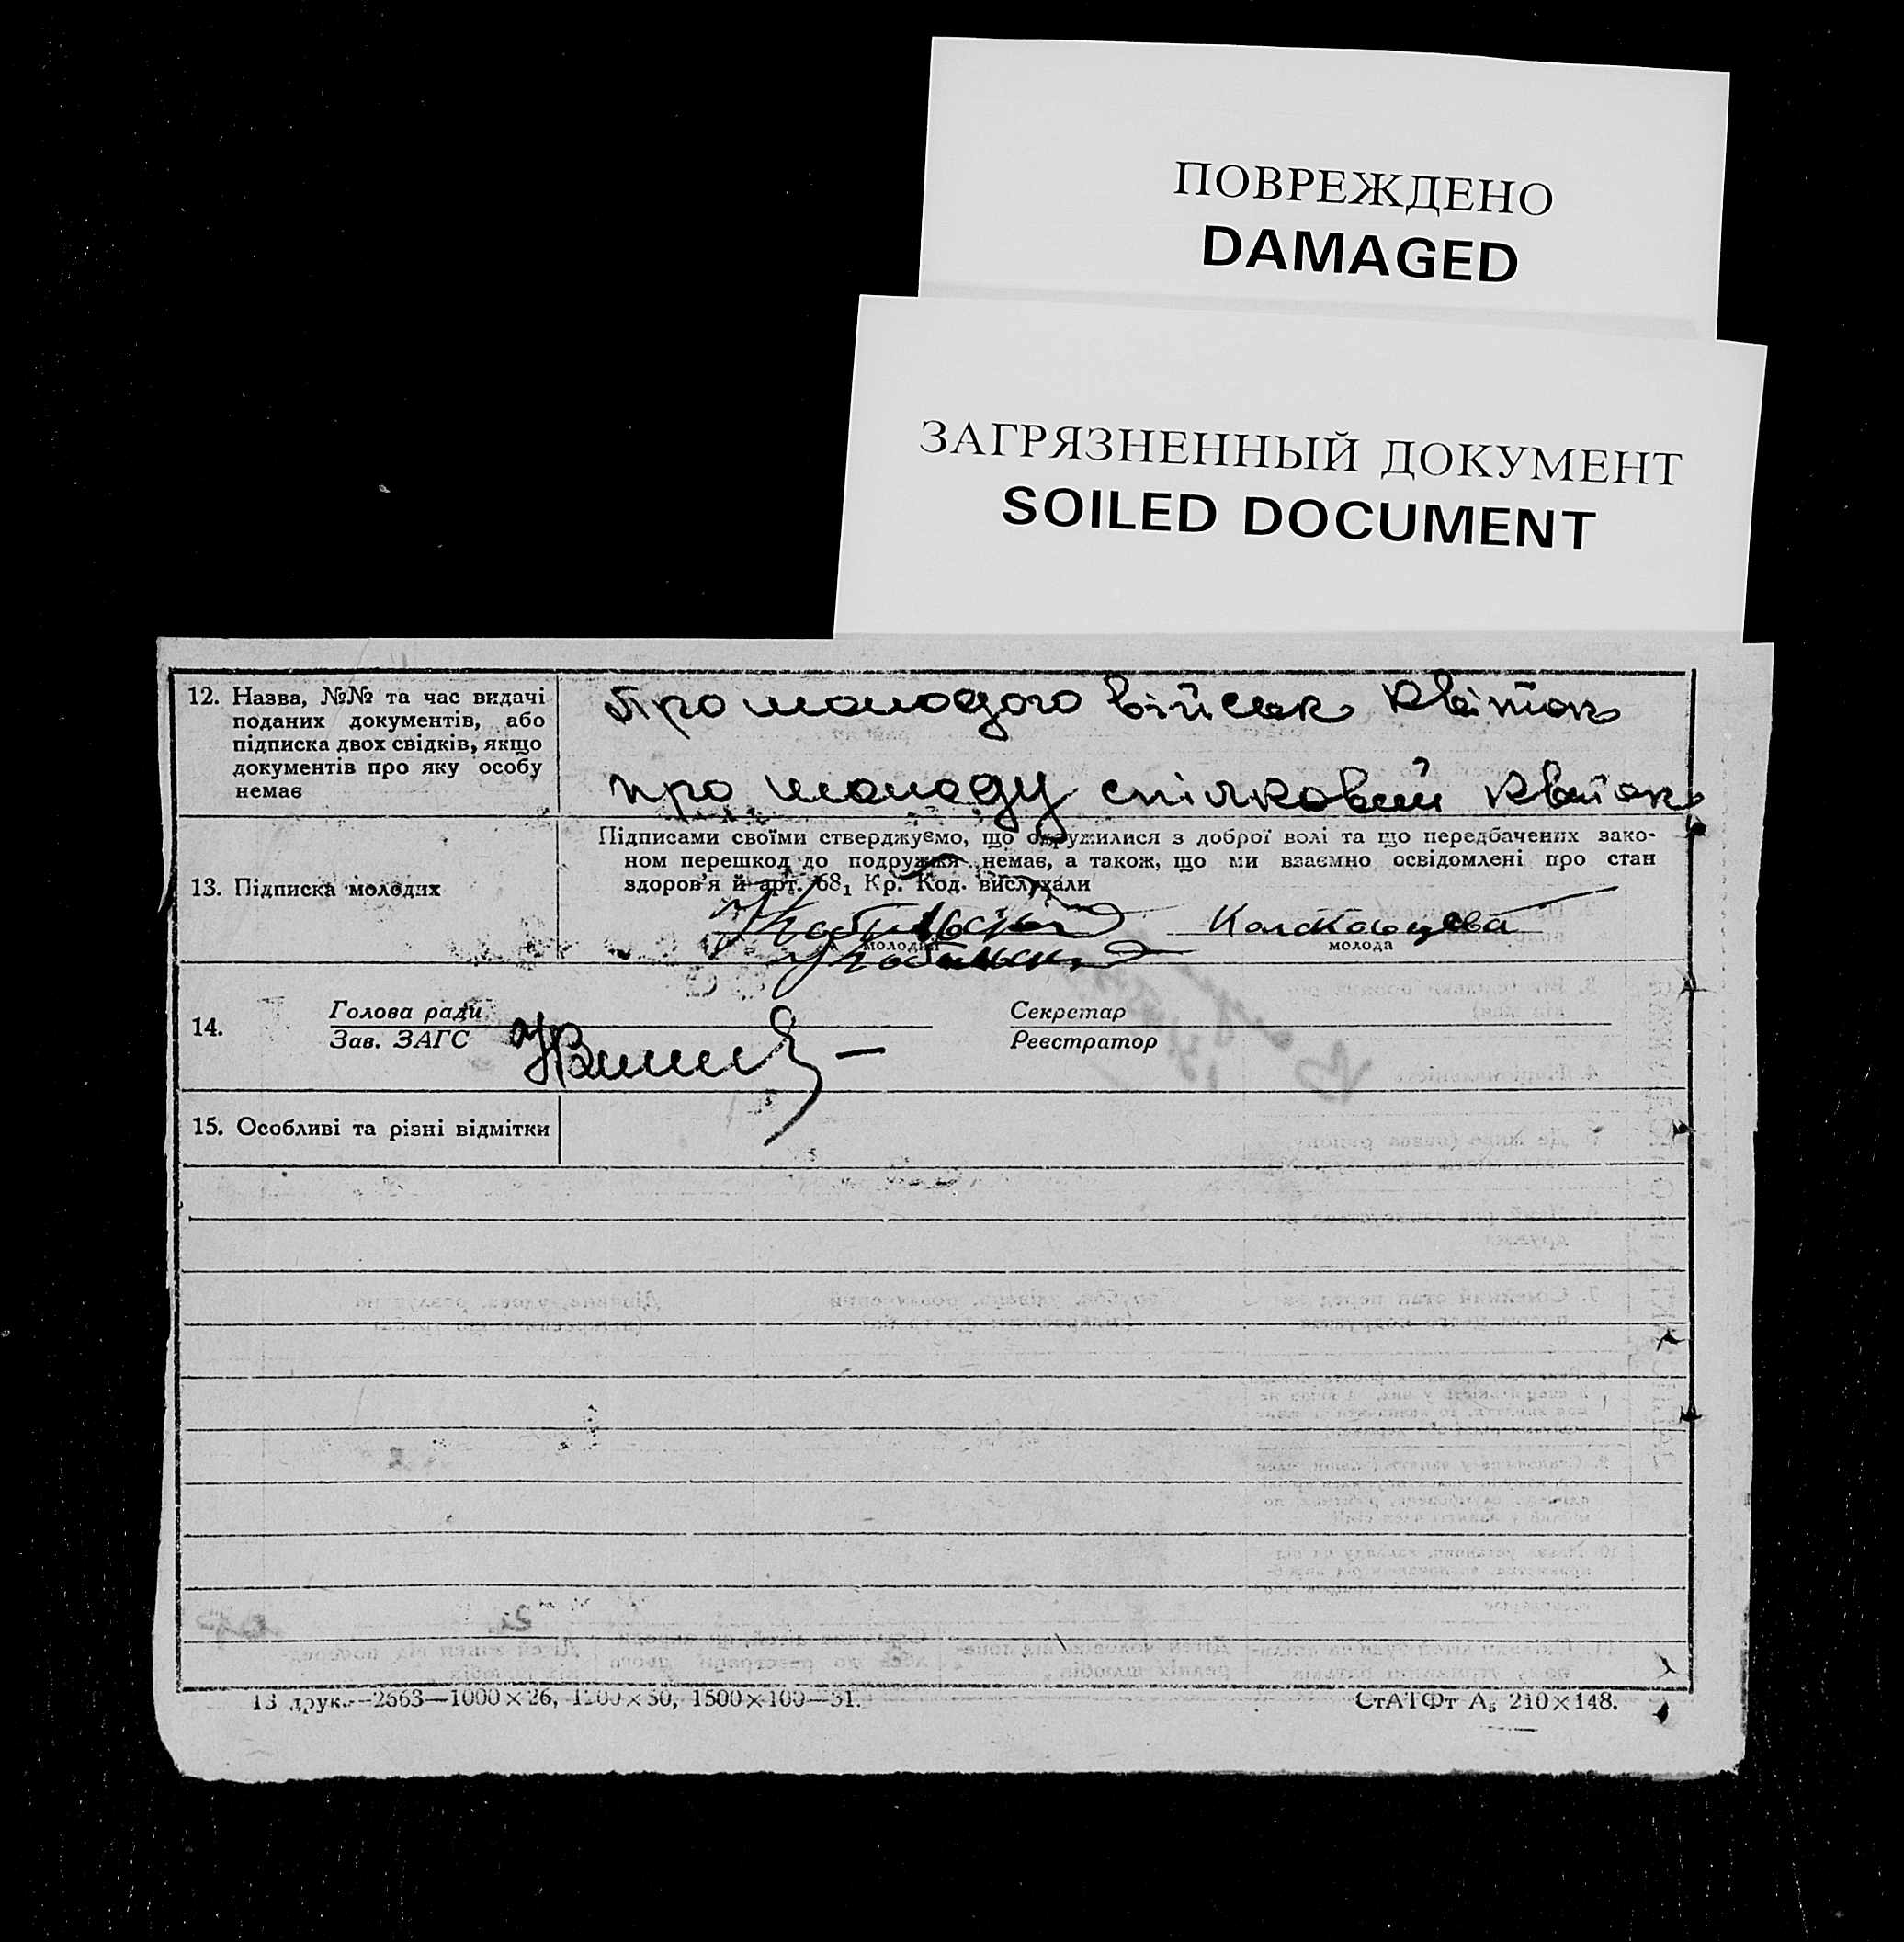 ПОВРЕЖДЕНО
DAMAGED
ЗАГРЯЗНЕННЫЙ ДОКУМЕНТ
SOILED DOCUMENT
12. Назва, №№ та час видачі
поданих документів, або
підписка двох свідків, якщо
документів про яку особу
немає
про молодого військ квіток
про молоду спілковий квіток
Підписами своїми стверджуємо, що одружилися з доброї волі та що передбачених зако-
ном перешкод до подружжя немає, а також, що ми взаємно освідомлені про стан
здоров'я й арт. 68₁ Кр. Код. вислухали
13. Підписка молодих
молодий
молода
14.
Голова ради
Зав. ЗАГС
Секретар
Реєстратор
15. Особливі та різні відмітки
13 друк.—2663—1000×26, 1200×50, 1500×100—31.
СтАТФт А₅ 210×148.